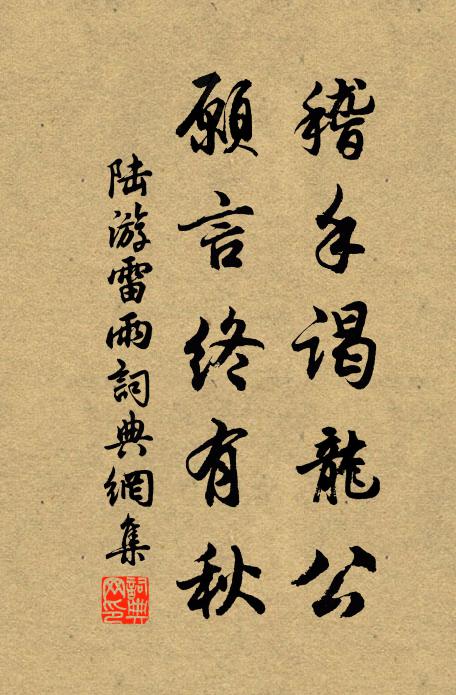 稽首謁龍公
願言終有秋
陸游雷雨詞典網集
詞典
网印